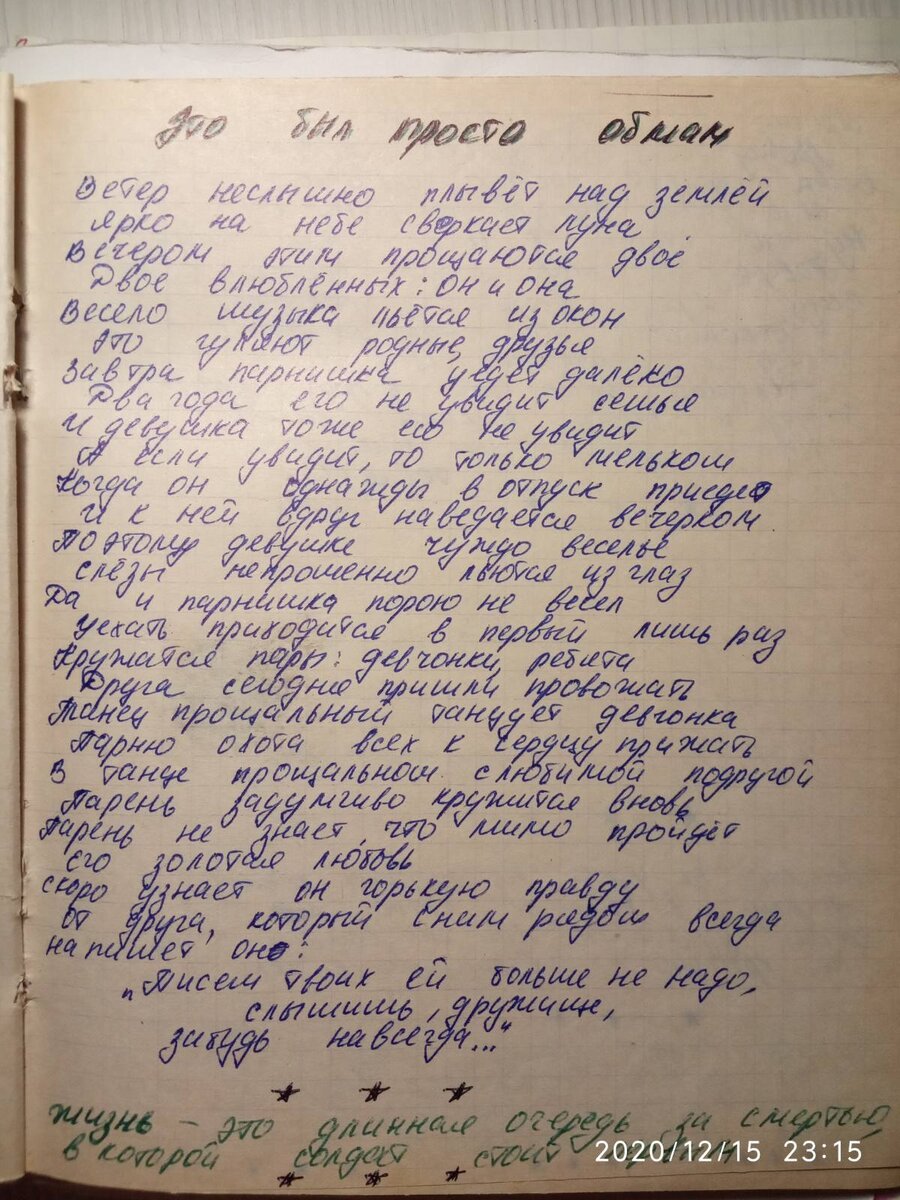 Это был просто обман
Ветер неслышно плывёт над землёй
Ярко на небе сверкает луна
Вечером этим прощаются двое
Двое влюблённых: он и она
Весело музыка льётся из окон
Это гуляют родные, друзья
Завтра парнишка уедет далёко
Два года его не увидит семья
И девушка тоже его не увидит
А если увидит, то только мельком
Когда он однажды в отпуск приедет
И к ней вдруг наведается вечерком
Поэтому девушке чуждо веселье
Слёзы непрошенно льются из глаз
Да и парнишка порою не весел
Уехать приходится в первый лишь раз
Кружатся пары: девчонки, ребята
Друга сегодня пришли провожать
Танец прощальный танцует девчонка
Парню охота всех к сердцу прижать
В танце прощальном с любимой подругой
Парень задумчиво кружится вновь
Парень не знает, что мимо пройдёт
Его золотая любовь
Скоро узнает он горькую правду
От друга, который с ним рядом всегда
напишет он:
„Писем твоих ей больше не надо,
слышишь, дружище,
забудь навсегда..."
Жизнь – это длинная очередь за смертью,
в которой солдат стоит
2020/12/15 23:15